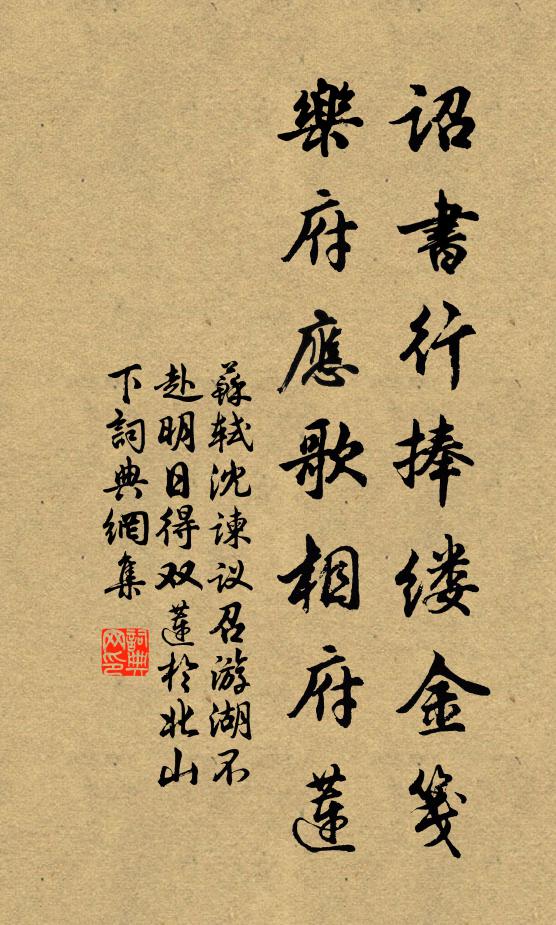 诏書行捧缕金笺
樂府應歌相府蓮
蘇軾沈諫议召游湖不
赴明日得双蓮於北山
下詞典網集
詞典网印